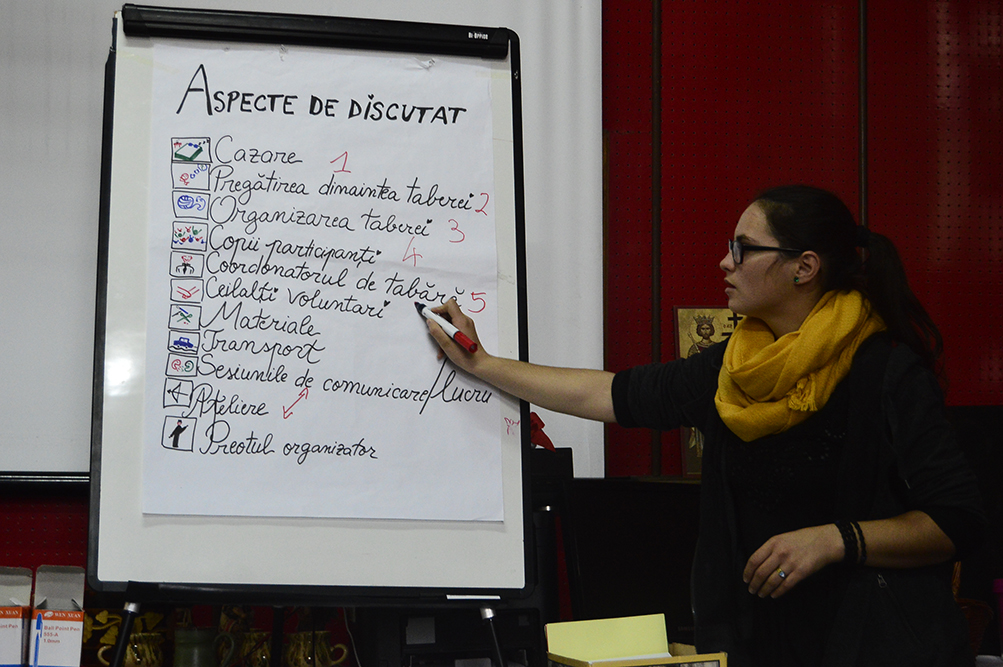 BI-OFFICE
ASPECTE DE DISCUTAT
Cazare 1
Pregătirea dimaintea taberei 2
Organizarea taberei 3
Copii participanți 4
Coordonatorul de tabără 5
Ceilalți voluntari
Materiale
Transport
Sesiunile de comunicare/lucru
Ateliere
Preotul organizator
Ball Point Pen
555-A
1.0mm